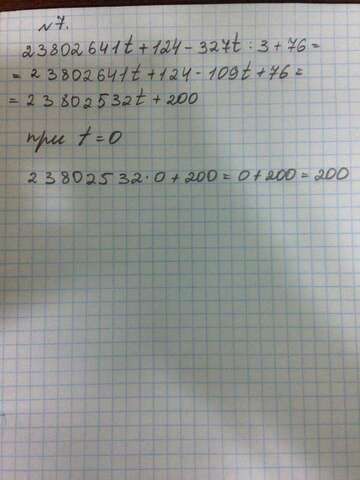 №7.
23802641t+124-327t:3+76=
=23802641t+124-109t+76=
=23802532t+200
при t=0
23802532·0+200=0+200=200